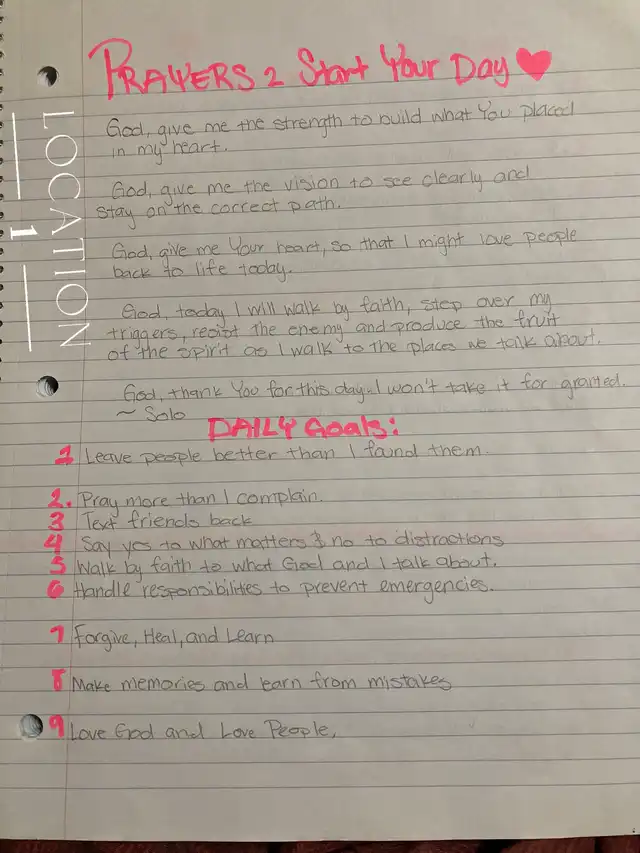 PRAYERS 2 Start Your Day ♥
LOCATION
1
God, give me the strength to build what You placed
in my heart.
God, give me the vision to see clearly and
stay on the correct path.
God, give me Your heart, so that I might love people
back to life today.
God, today I will walk by faith, step over my
triggers, resist the enemy and produce the fruit
of the spirit as I walk to the places we talk about.
God, thank You for this day-I won't take it for granted.
~ Solo
DAILY Goals:
1 Leave people better than I found them.
2. Pray more than I complain.
3 Text friends back
4 Say yes to what matters & no to distractions
5 Walk by faith to what God and I talk about.
6 Handle responsibilites to prevent emergencies.
7 Forgive, Heal, and Learn
8 Make memories and learn from mistakes
9 Love God and Love People,